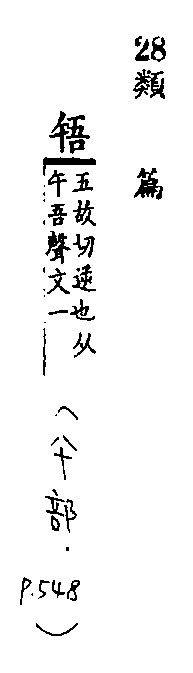 28類篇
啎
五故切逆也从
午吾聲文一
（午部．P.548）